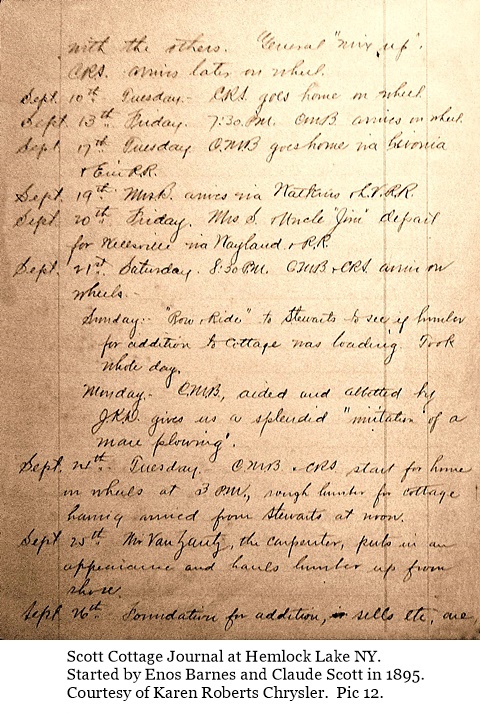 with the others. General "mix up".
C.R.S. arrives later on wheel.
Sept. 10th Tuesday.- C.R.S. goes home on wheel.
Sept. 13th Friday. 7:30 P.M. O.M.B arrives on wheel.
Sept 17th Tuesday O.M.B goes home via Livonia
& Erie R.R.
Sept. 19th Mrs B. arrives via Watkins & L.V.R.R.
Sept. 20th Friday. Mrs S. & Uncle "Jim" depart
for Wellsville via Wayland & R.R.
Sept. 21st Saturday. 8:30 P.M. O.M.B & C.R.S. arrive on
wheels.-
Sunday:- "Row & Ride" to Stewarts to see if lumber
for addition to cottage was loading. Took
whole day.
Monday.- O.M.B, aided and abbotted by
gives us a splendid "imitation of a
man plowing".
Sept. 24th- Tuesday. O.M.B & C.R.S start for home
on wheels at 3 P.M., rough lumber for cottage
having arrived from Stewarts at noon.
Sept 25th Mr Van the carpenter, puts in an
appearance and hauls lumber up from
shore.
Sept 26th Foundation for addition, sells etc, are
Scott Cottage Journal at Hemlock Lake NY.
Started by Enos Barnes and Claude Scott in 1895.
Courtesy of Karen Roberts Chrysler. Pic 12.